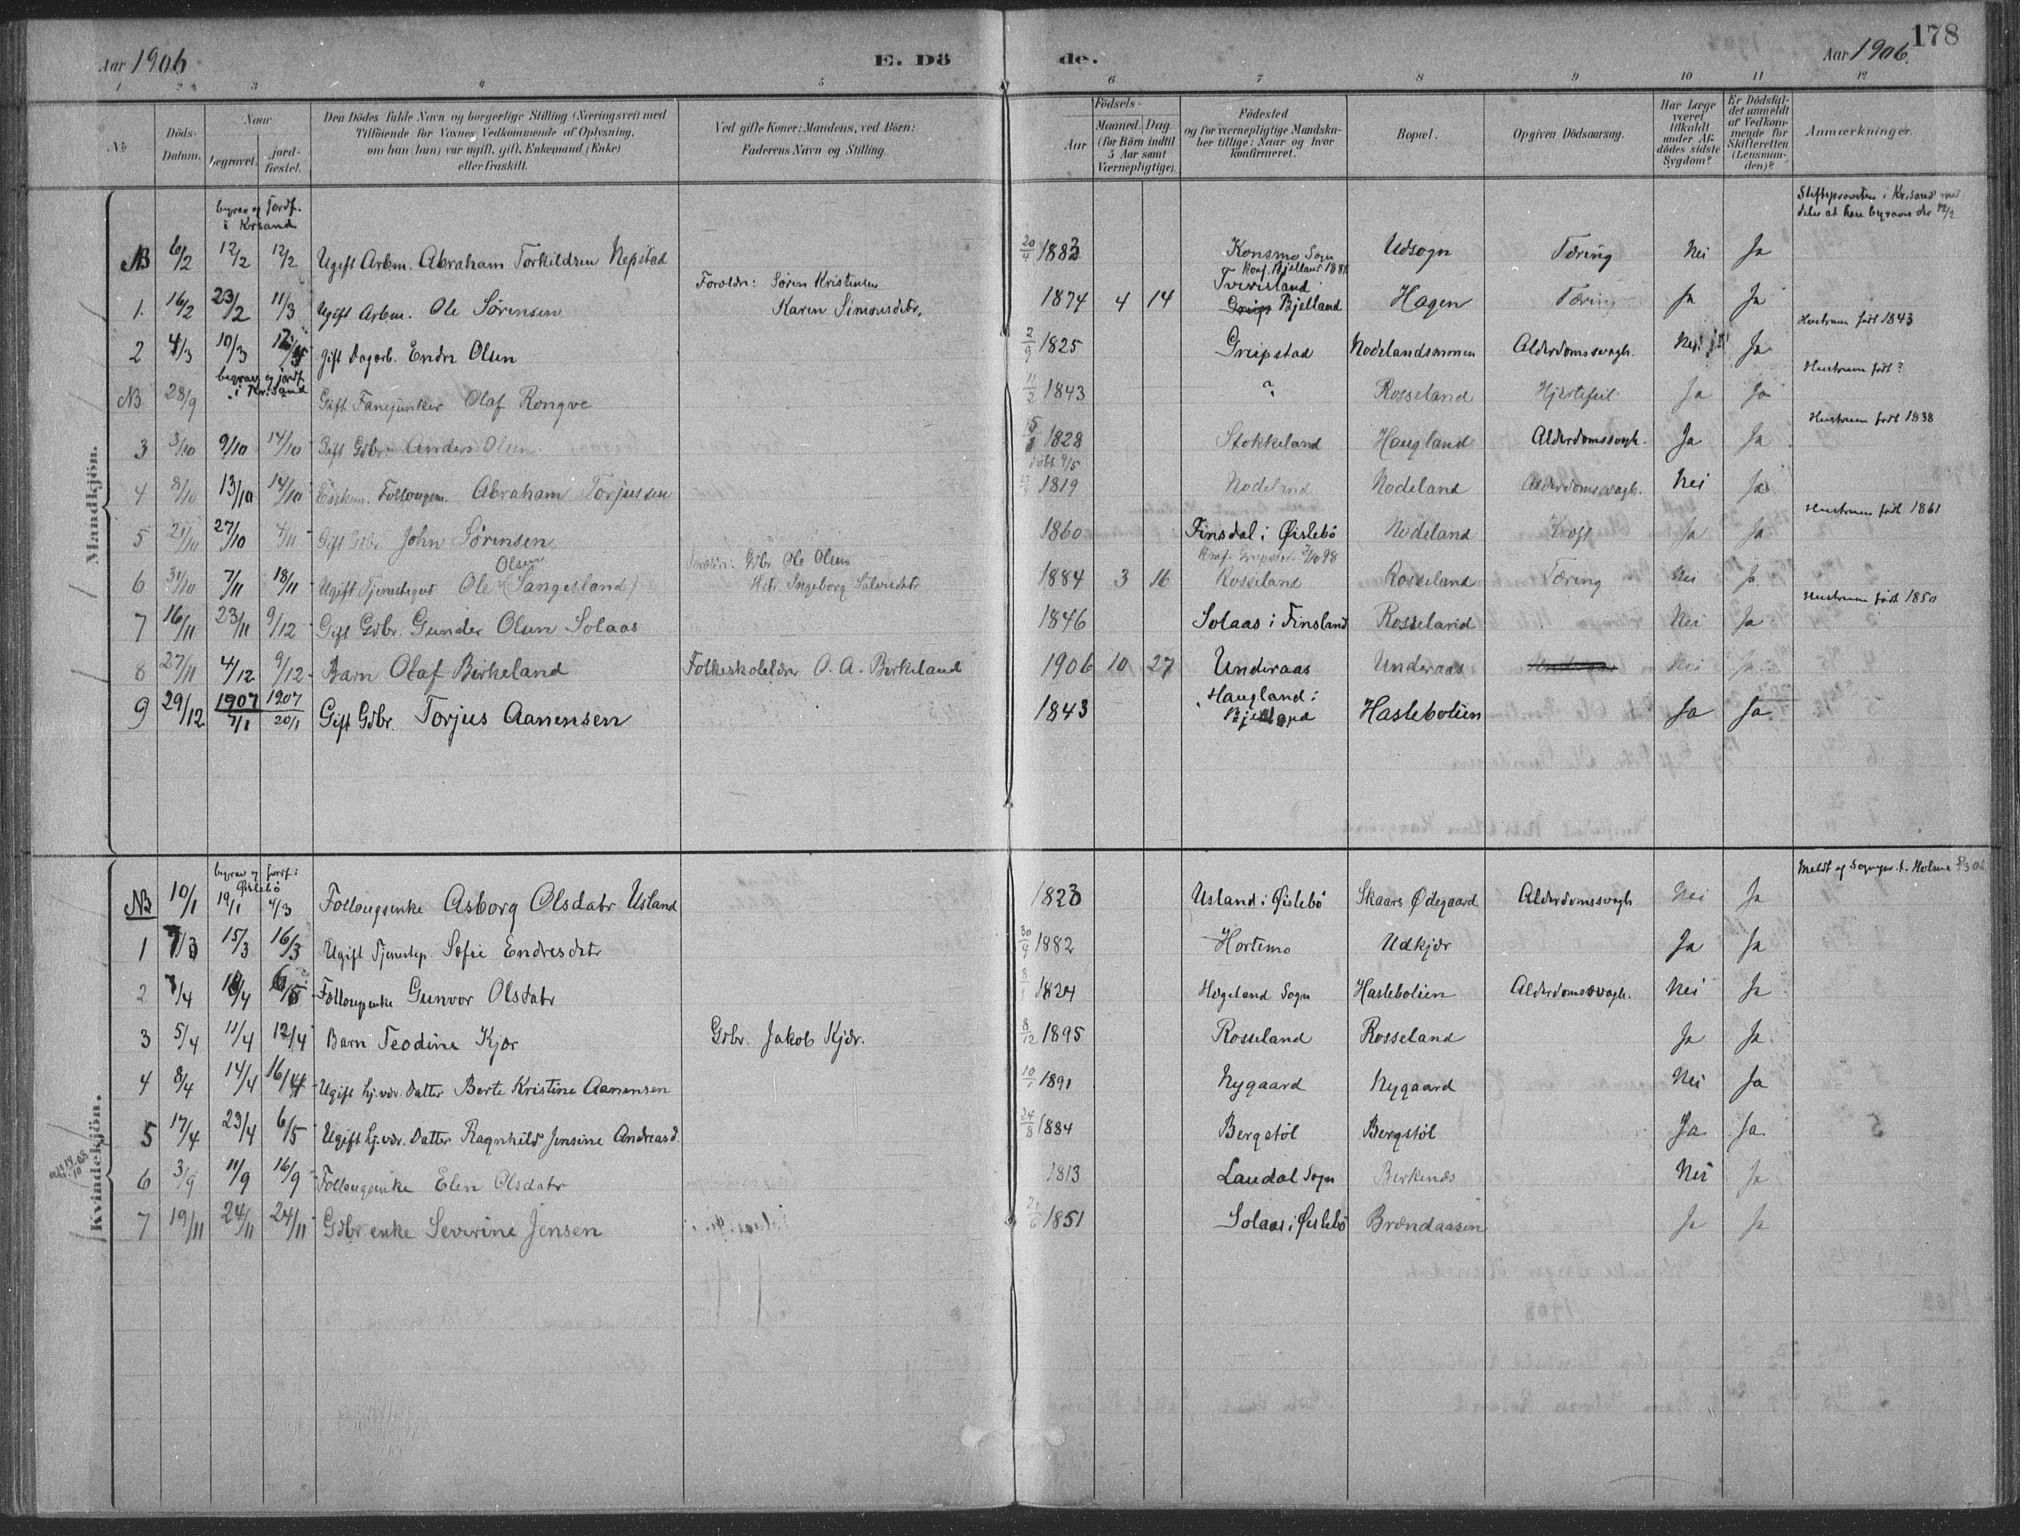 178
Aar 1906
E. Dö
de.
Aar 1906.
1 2 3 4 5 6 7 8 9 10 11 12
No
Döds-Datum.
Naar
begravet.
jordfæstet.
Den Dödes fulde Navn og borgerlige Stilling (Næringsvei) med
Tilföiende for Voxnes Vedkommende af Oplysning,
om han (hun) var ugift, gift, Enkemand (Enke)
eller fraskilt.
Ved gifte Koner: Mandens, ved Børn:
Faderens Navn og Stilling.
Födsels-
Aar
Maaned. Dag.
(for Börn indtil
5 Aar samt
Værnepligtige).
Födested
og for værnepligtige Mandska-
ber tillige: Naar og hvor
konfirmeret.
Bopæl.
Opgiven Dödsaarsag.
Har Læge
været
tilkaldt
under Af-
dödes sidste
Sygdom?
Er Dödsfal-
det anmeldt
af Vedkom-
mende for
Skifteretten
(Lensman-
den)?
Anmærkninger.
Mandkjön.
begrav og Jordf. i Krsand
Stiftsprovsten i Kr.sand
deler at have begravet
NB 6/2 12/2 12/2 Ugift Arbm. Abraham Torkildsen Nepstad 20/4 1883 Konsmo Sogn Udsogn Tæring Nei Ja
Konf. Bjelland
1. 16/2 23/2 11/3 Ugift Arbm. Ole Sørensen Foræld: Søren Kristensen Karen Simonsdtr. 1874 4 14 Tveitsland i Bjelland Hagen Tæring Ja Ja
Hustruen født 1843
2 4/3 10/3 Gift Dagarb. Endre Olsen 2/9 1825 Greipstad Nodelandsmoen Alderdomssvagh. Nei Ja
Hustruen født ?
begrav og jordf. i Kr.sand
NB 28/9 Gift Fanejunker Olaf Rongve 11/2 1843 ? Rosseland Hjertefeil Ja Ja
Hustruen født 1838
3 3/10 9/10 14/10 Gift Gdbr. Anders Olsen 1828 Stokkeland Haugland Alderdomssvagh. Ja Ja
døbt 9/5
4 8/10 13/10 14/10 Enkem. Føllougsm. Abraham Torjussen 1819 Nodeland Nodeland Alderdomssvagh. Nei Ja
Hustruen født 1861
5 21/10 27/10 4/11 Gift Gdbr John Sørensen 1860 Finsdal i Øislebø Nodeland Kræft Ja Ja
Konf. Greipstad 2/10 98
6 31/10 7/11 18/11 Ugift Tjenestegut Ole Olsen (Sangesland) Foræld: Gdbr Ole Olsen Hstr. Ingeborg Salvesdtr 1884 3 16 Rosseland Rosseland Tæring Nei Ja
Hustruen født 1850
7 16/11 23/11 9/12 Gift Gdbr. Gunder Olsen Solaas 1846 Solaas i Finsland Rosseland Nei Ja
8 27/11 4/12 9/12 Barn Olaf Birkeland Folkeskolelærer O. A. Birkeland 1906 10 27 Underaas Underaas Nei Ja
9 29/12 1907 7/1 1907 20/1 Gift Gdbr. Torjus Aanensen 1843 Haugland i Bjelland Haslebolien Ja Ja
Kvindekjön.
begrav og jordf. i Øislebø
Meldt af Sognepr. t. Holume
NB 10/1 19/1 4/3 Føllougsenke Asborg Olsdatr Usland 1823 Usland i Øislebø Skaars Ødegaard Alderdomssvagh Nei Ja
1 7/3 15/3 16/3 Ugift Tjenestep. Sofie Endresdatr 30/9 1882 Hortemo Udkjær Ja Ja
2 7/4 6/5 Føllougsenke Gunvor Olsdatr 1824 Hægeland Sogn Haslebolien Alderdomssvagh. Nei Ja
3 5/4 11/4 12/4 Barn Teodine Kjær Gdbr. Jakob Kjær. 8/12 1895 Rosseland Rosseland Ja Ja
4 8/4 14/4 16/4 Ugift hj.vær. Datter Berte Kristine Aanensen 10/1 1891 Nygaard Nygaard Nei Ja
5 17/4 23/4 6/5 Ugift hj.vær. Datter Ragnhild Jensine Andreasd. 24/8 1884 Bergstøl Bergstøl Ja Ja
6 3/9 11/9 16/9 Føllougsenke Elen Olsdatr 1813 Laudal Sogn Birkenes Nei Ja
7 19/11 24/11 24/11 Gdbr enke Severine Jensen 21/6 1851 Solaas i Øislebø Brændaasen Ja Ja